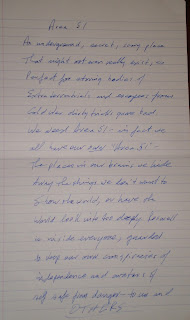 Area 51
An underground, secret, scary place
That might not even really exist, so
Perfect for storing bodies of
Extraterrestrials and weapons from
Cold War dirty tricks gone bad.
We need Area 51 – in fact we
all have our own "Area 51" –
The place in our brains we
away the things we don't want to
show the world, or have the
world look into too deeply
inside everyone, guarded
to keep our own conspiracies of
independence and
self safe from danger – to us and
others